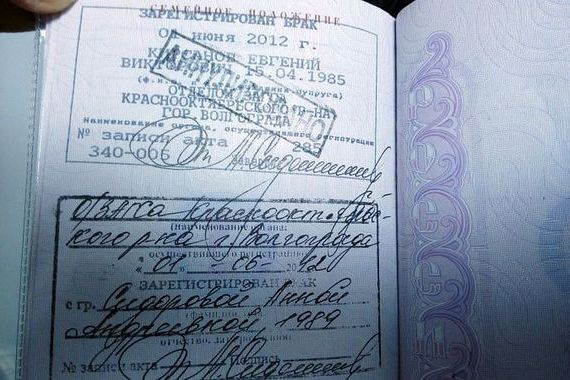 СЕМЕЙНОЕ ПОЛОЖЕНИЕ
ЗАРЕГИСТРИРОВАН БРАК
01 июня 2012 г.
ЕВГЕНИЙ
15.04.1985
ОТДЕЛОМ
КРАСНООКТЯБРЬСКОГО Р-НА
ГОР. ВОЛГОГРАДА
Наименование органа, осуществившего регистрацию
№ записи акта 285
340-006
О/ЗАГСа Краснооктябрьс-
кого р-на г. Волгограда
(наименование органа,
осуществившего регистрацию)
"01" - 06 - 2012
ЗАРЕГИСТРИРОВАН БРАК
с гр. Сидоровой Анной
Андреевной, 1989
отчество, дата рожд.
№ записи акта Подпись